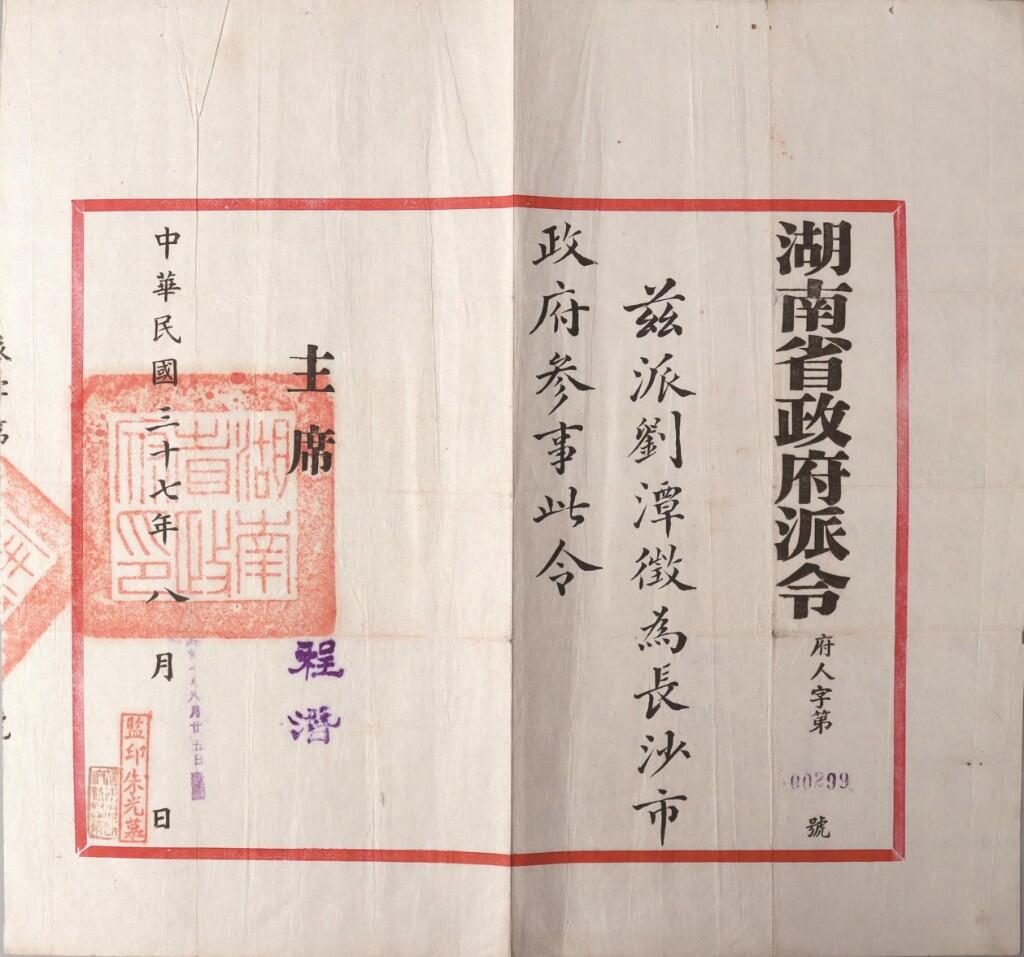 湖南省政府派令
府人字第
00299
號
茲派劉潭徵為長沙市
政府參事此令
主席
程潛
湖南省政府印
中華民國三十七年八月 日
八月廿五日
監印朱光墓